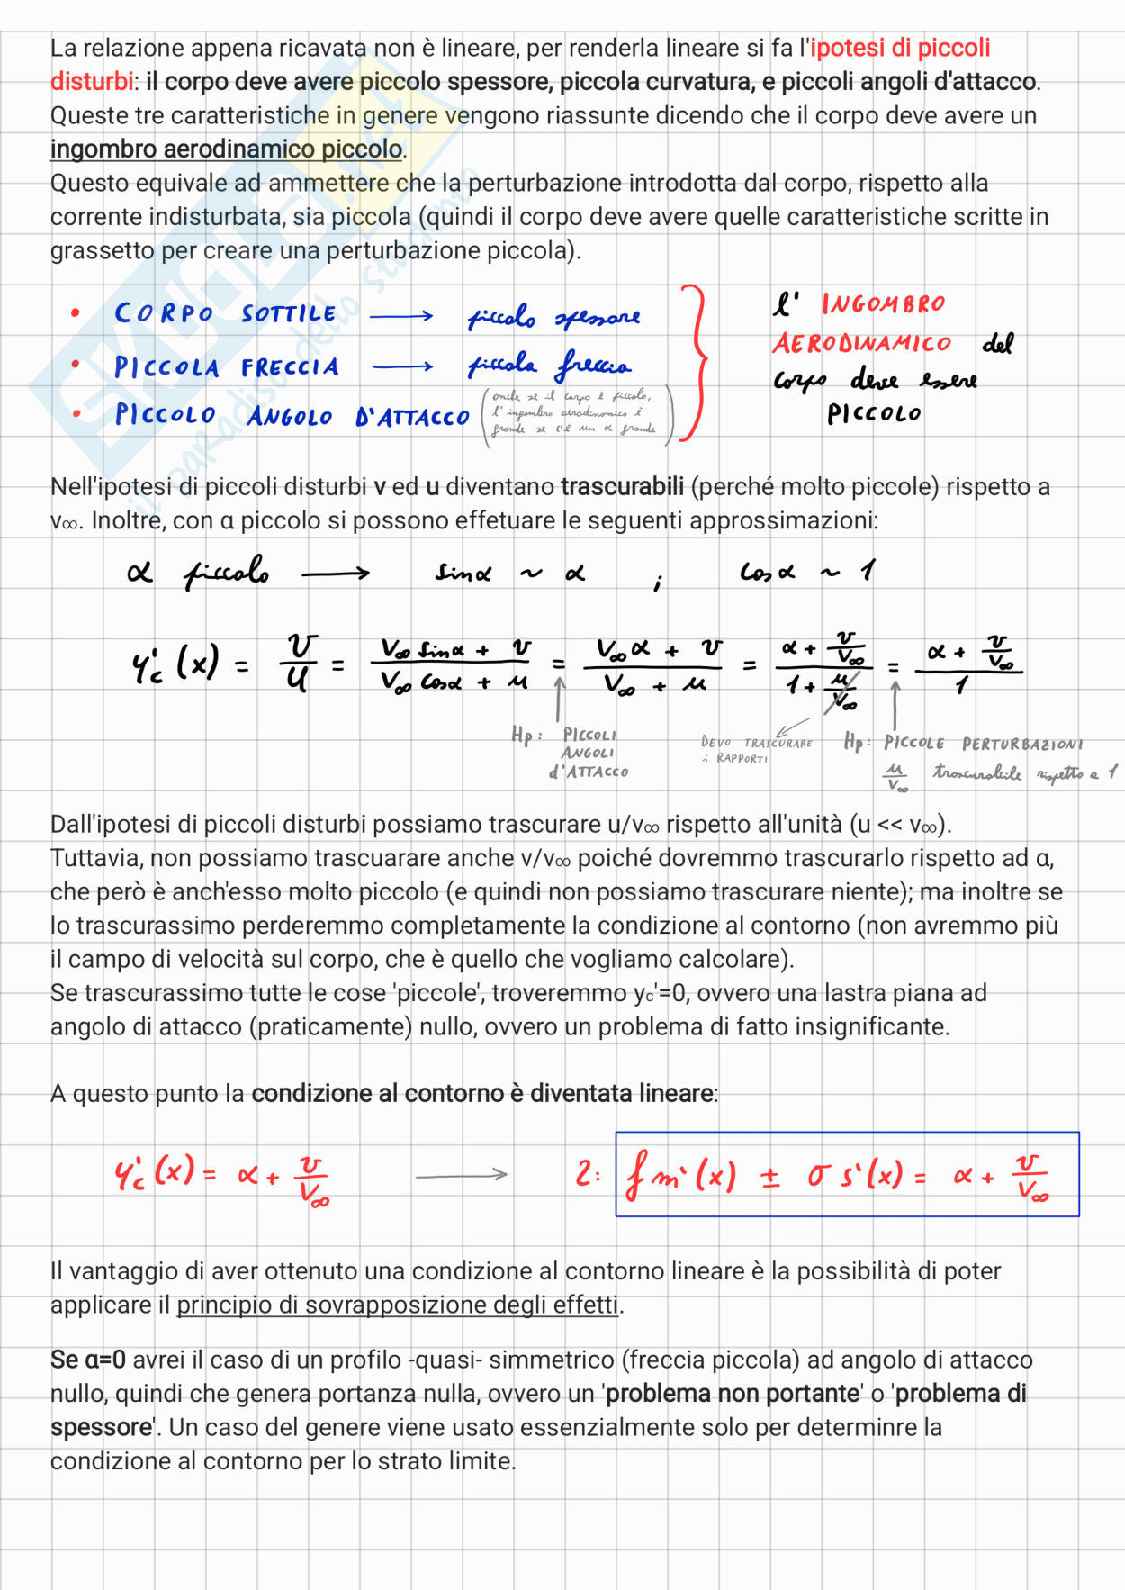 La relazione appena ricavata non è lineare, per renderla lineare si fa l'ipotesi di piccoli
disturbi: il corpo deve avere piccolo spessore, piccola curvatura, e piccoli angoli d'attacco.
Queste tre caratteristiche in genere vengono riassunte dicendo che il corpo deve avere un
ingombro aerodinamico piccolo.
Questo equivale ad ammettere che la perturbazione introdotta dal corpo, rispetto alla
corrente indisturbata, sia piccola (quindi il corpo deve avere quelle caratteristiche scritte in
grassetto per creare una perturbazione piccola).
• CORPO SOTTILE → piccolo spessore
• PICCOLA FRECCIA → piccola freccia
• PICCOLO ANGOLO D'ATTACCO (anche se il corpo è piccolo,
l'ingombro aerodinamico è
grande se c'è un α grande)
l' INGOMBRO
AERODINAMICO del
corpo deve essere
PICCOLO
Nell'ipotesi di piccoli disturbi v ed u diventano trascurabili (perché molto piccole) rispetto a
v∞. Inoltre, con α piccolo si possono effetuare le seguenti approssimazioni:
α piccolo → sinα ~ α ; cosα ~ 1
y'c (x) = v/U = (V∞ sinα + v)/(V∞ cosα + u) = (V∞ α + v)/(V∞ + u) = (α + v/V∞)/(1 + u/V∞) = (α + v/V∞)/1
Hp: PICCOLI
ANGOLI
d'ATTACCO
DEVO TRASCURARE
i RAPPORTI
Hp: PICCOLE PERTURBAZIONI
u/V∞ trascurabile rispetto a 1
Dall'ipotesi di piccoli disturbi possiamo trascurare u/v∞ rispetto all'unità (u << v∞).
Tuttavia, non possiamo trascuarare anche v/v∞ poiché dovremmo trascurarlo rispetto ad α,
che però è anch'esso molto piccolo (e quindi non possiamo trascurare niente); ma inoltre se
lo trascurassimo perderemmo completamente la condizione al contorno (non avremmo più
il campo di velocità sul corpo, che è quello che vogliamo calcolare).
Se trascurassimo tutte le cose 'piccole', troveremmo yc'=0, ovvero una lastra piana ad
angolo di attacco (praticamente) nullo, ovvero un problema di fatto insignificante.
A questo punto la condizione al contorno è diventata lineare:
y'c (x) = α + v/V∞ → 2: f m'(x) ± σ s'(x) = α + v/V∞
Il vantaggio di aver ottenuto una condizione al contorno lineare è la possibilità di poter
applicare il principio di sovrapposizione degli effetti.
Se α=0 avrei il caso di un profilo -quasi- simmetrico (freccia piccola) ad angolo di attacco
nullo, quindi che genera portanza nulla, ovvero un 'problema non portante' o 'problema di
spessore'. Un caso del genere viene usato essenzialmente solo per determinre la
condizione al contorno per lo strato limite.
SKUOLA.net
il paradiso dello studente